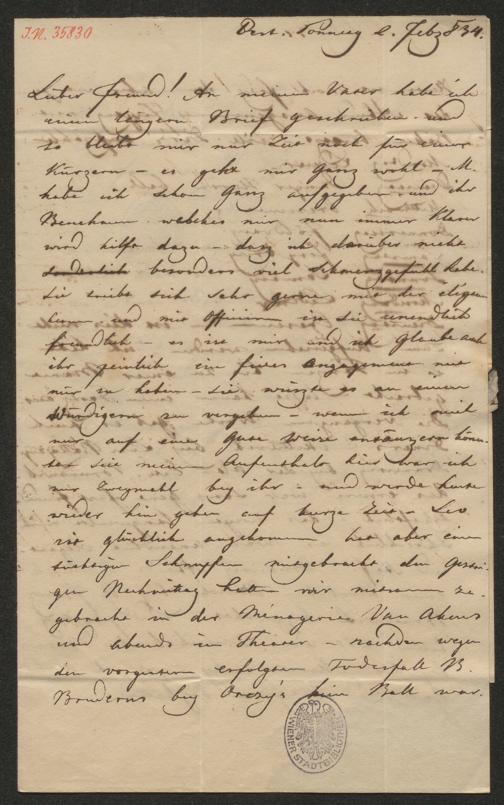 I.N. 35830
Pest. Sonntag 2. Feb 834.
Lieber Freund! An meinen Vater habe ich
einen längern Brief geschrieben und
so bleibt mir nur Zeit noch für einen
Kurzern – es geht mir ganz wohl – M.
habe ich schon ganz aufgegeben und ihr
Benehmen welches mir nun immer klarer
wird hilft dazu – daß ich darüber nicht
sonderlich besonders viel Schmerzgefühl habe.
Sie sich sehr gerne mit der
und mit Officiren ist sie unendlich
freundlich – es ist mir und ich glaube auch
ihr peinlich ein fixes engagement mit
mir zu haben – sie wüßte es an einen
Würdigern zu vergeben – wenn ich mich
nur auf eine gute Weise
seit meinem Aufenthalt hier war ich
nur zweymahl bey ihr – und werde heute
wieder hin gehen auf kurze Zeit – Leo
ist glücklich angekommen hat aber einen
tüchtigen Schnupfen mitgebracht den gestri-
gen Nachmittag hatten wir mitsam zu-
gebracht in der Ménagerie Van Akens
und abends im Theater – nachdem wegen
den vorgestern erfolgten Todesfall B.
Bruderns bey Orczy's kein Ball war.
WIENER STADTBIBLIOTHEK